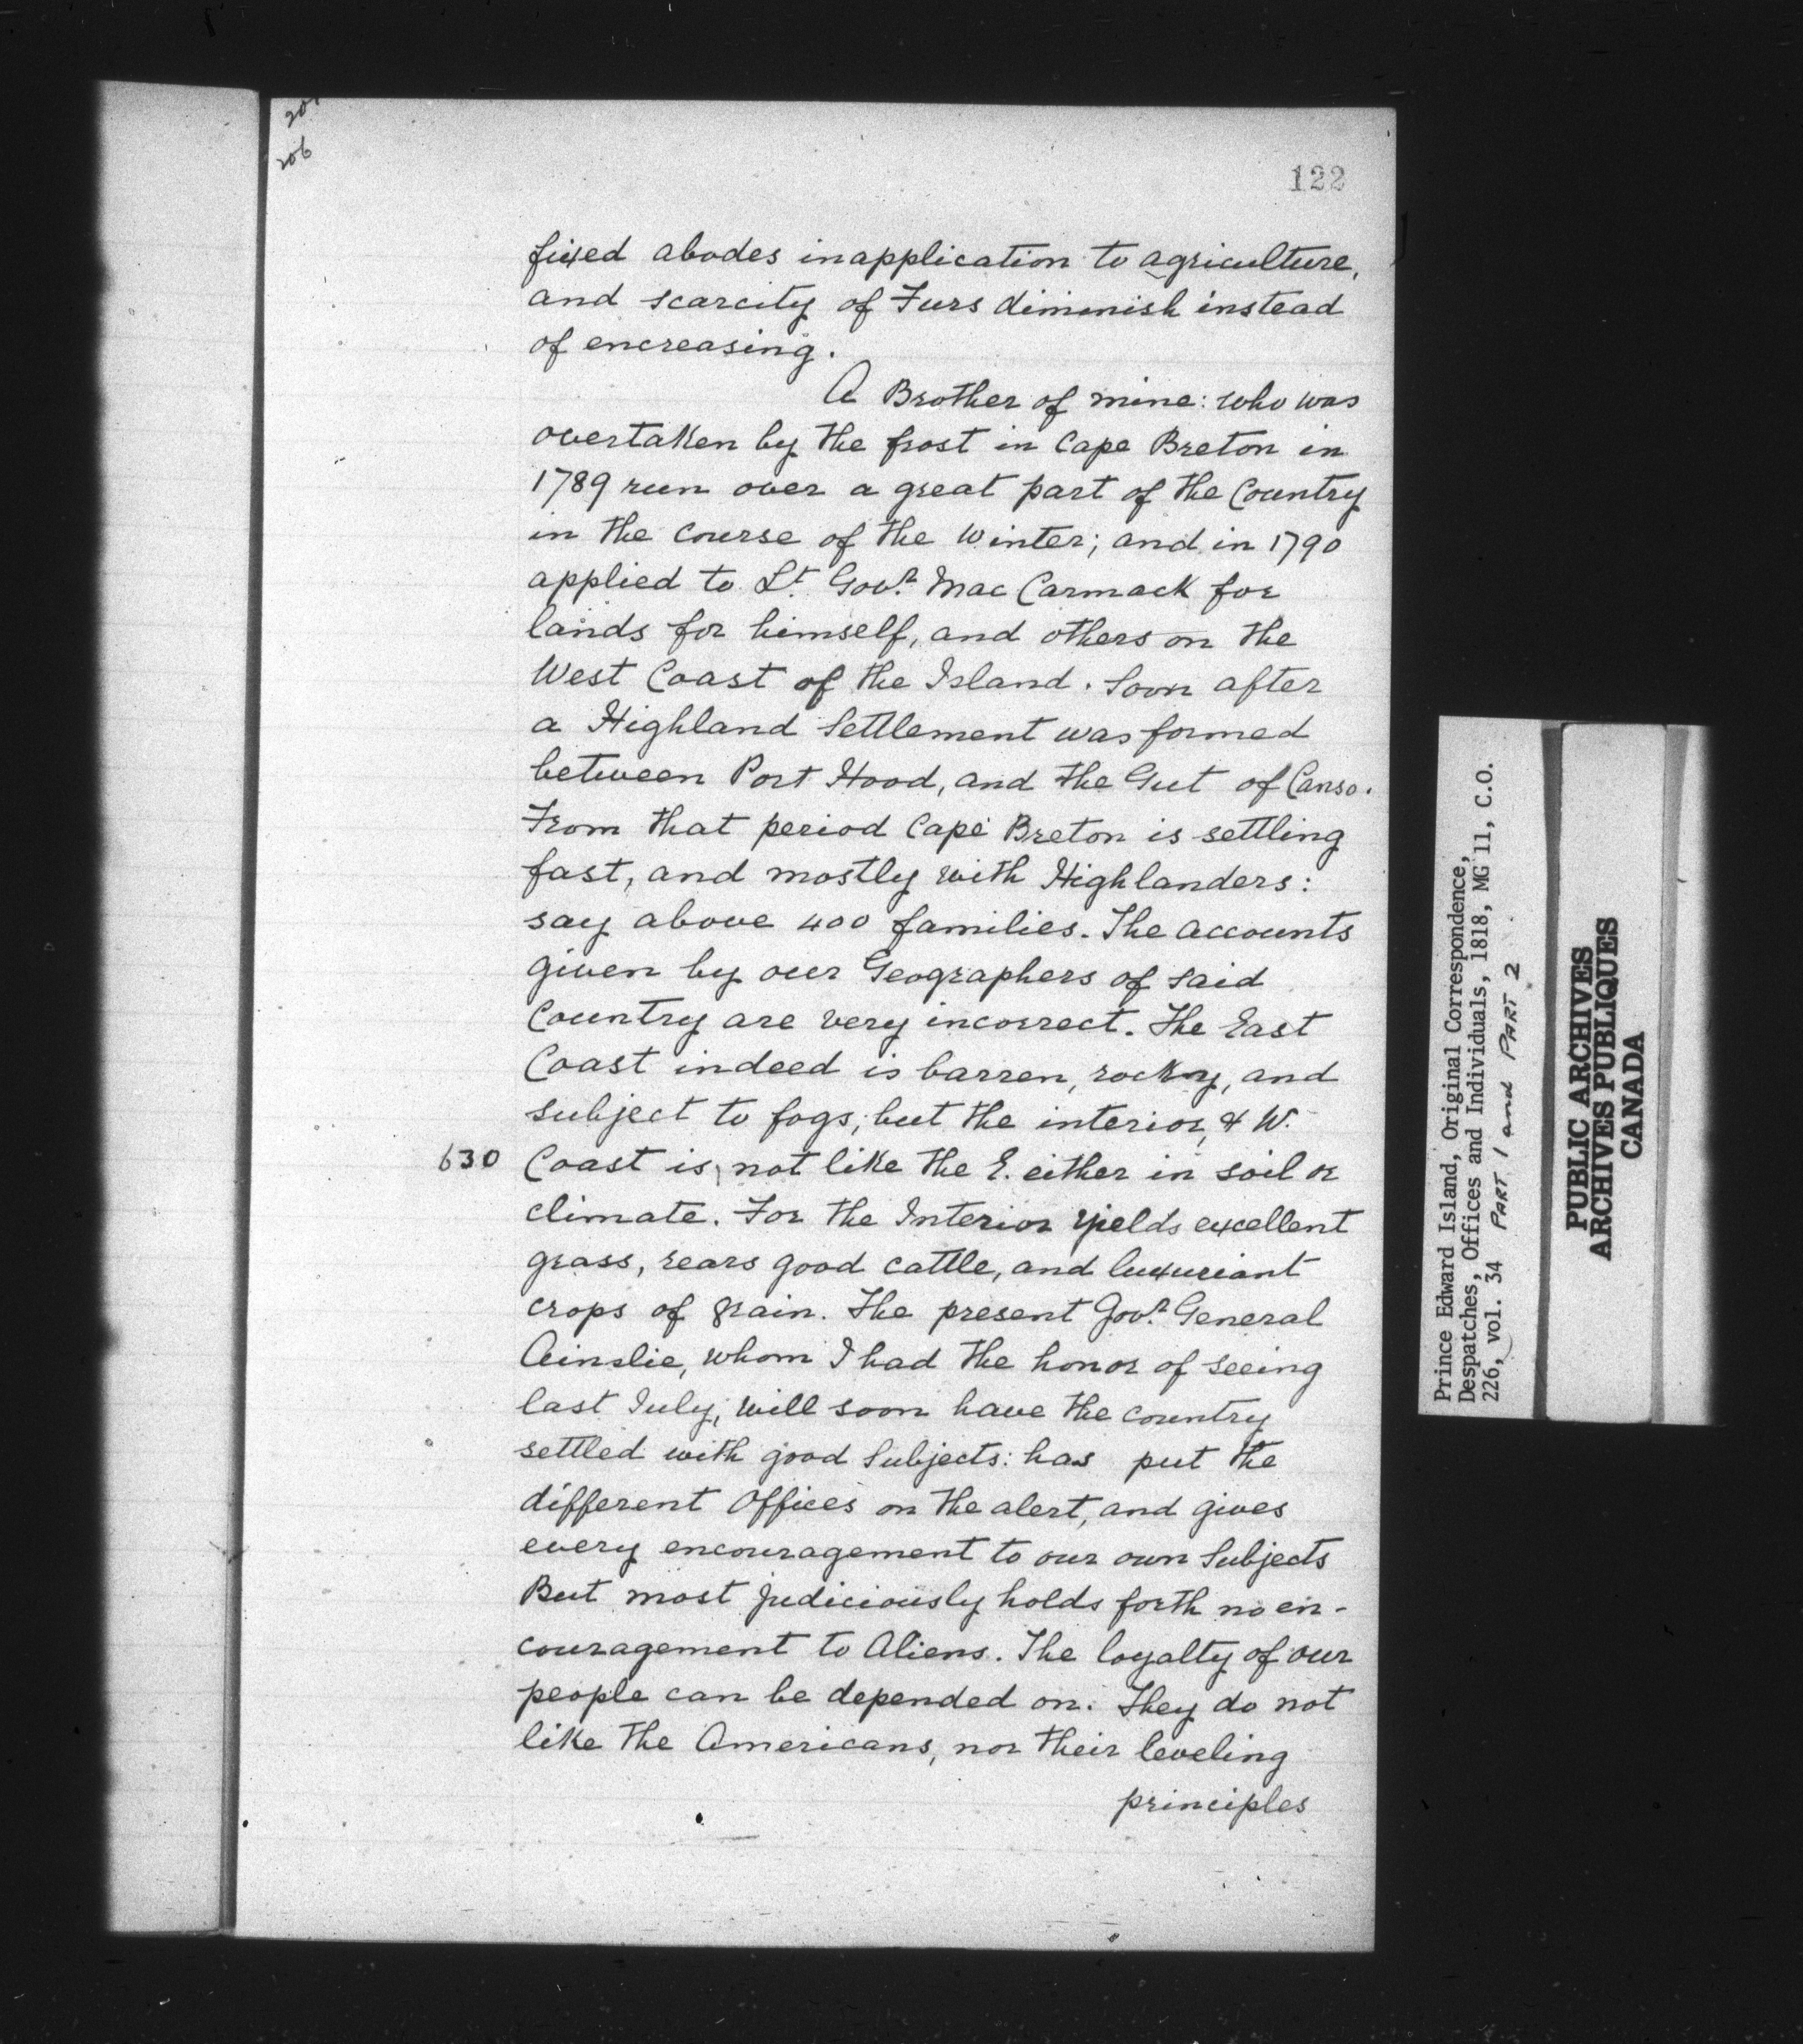 206
122
fixed abodes inapplication to agriculture,
and scarcity of Furs diminish instead
of encreasing.
A Brother of mine: who was
overtaken by the frost in Cape Breton in
1789 run over a great part of the Country
in the course of the Winter; and in 1790
applied to Lt. Govr. Mac Carmack for
lands for himself, and others on the
West Coast of the Island. Soon after
a Highland Settlement was formed
between Port Hood, and the Gut of Canso.
From that period Cape Breton is settling
fast, and mostly with Highlanders:
say above 400 families. The accounts
given by our Geographers of said
Country are very incorrect. The East
Coast indeed is barren, rocky, and
subject to fogs; but the interior, & W.
630 Coast is, not like the E. either in soil or
climate. For the Interior yields excellent
grass, rears good cattle, and luxuriant
crops of grain. The present Govr. General
Ainslie, whom I had the honor of seeing
last July, will soon have the country
settled with good Subjects: has put the
different Offices on the alert, and gives
every encouragement to our own Subjects
But most judiciously holds forth no en-
couragement to Aliens. The loyalty of our
people can be depended on. They do not
like the Americans, nor their leveling
principles
Prince Edward Island, Original Correspondence,
Despatches, Offices and Individuals, 1818, MG 11, C.O.
226, vol. 34 PART 1 and PART 2
PUBLIC ARCHIVES
ARCHIVES PUBLIQUES
CANADA